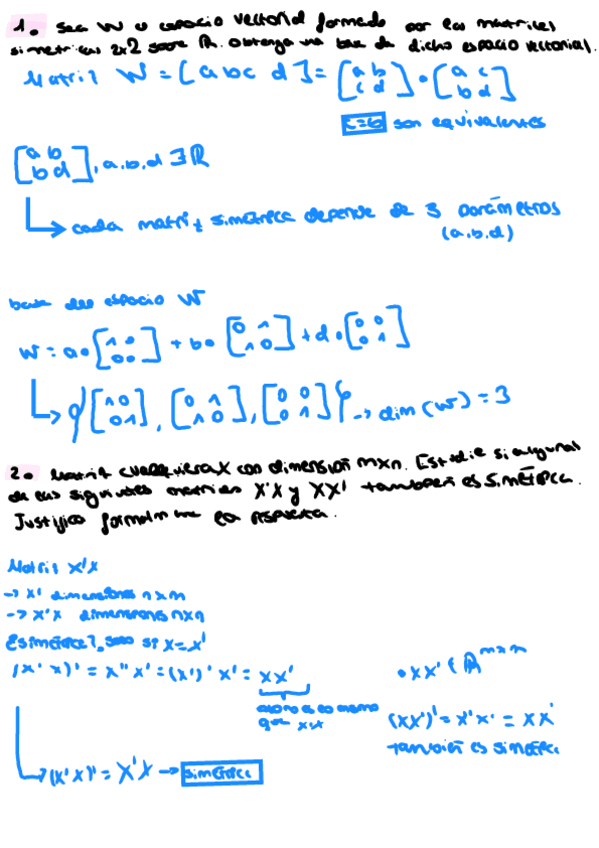 1. Sea W el espacio vectorial formado por las matrices
simetricas 2x2 sobre R. Obtenga una base de dicho espacio vectorial.
Matriz W = [a b c d] = [a b c d] · [a c b d]
c=b son equivalentes
[a b b d], a,b,d ∃ R
cada matriz simétrica depende de 3 parámetros
(a,b,d)
base del espacio W
W = a·[1 0 0 0] + b·[0 1 1 0] + d·[0 0 0 1]
{[1 0 0 1], [0 1 1 0], [0 0 0 1]} → dim (W) = 3
2. Matriz cualquiera X con dimensión mxn. Estudie si algunas
de las siguientes matrices X'X y XX' también es simétrica.
Justifico formalmente la respuesta.
Matriz X'X
→ X' dimensiones nxm
→ X'X dimensiones nxn
Es simétrica?, solo si X = X'
(X'X)' = X''X' = (X')'X' = XX'
que X'X
(X'X)' = X'X → simétrica
· XX' ∈ R^mxn
(XX')' = X'X' = XX'
también es simétrica